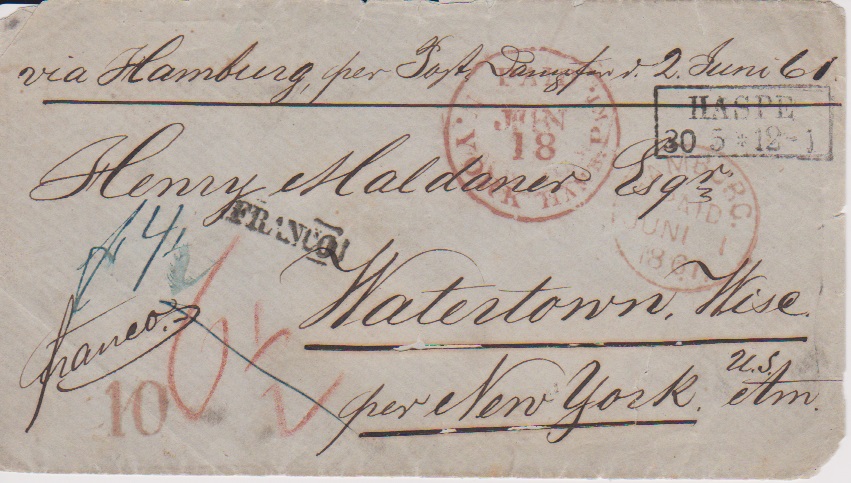 via Hamburg, per Post Dampfer d. 2. Juni 61.
N. YORK HAMB. PKT.
PAID
JUN
18
HASPE
30 5 * 12-1
Henry Maldaner Esqr
HAMBURG.
PAID
JUNI 1
1861
FRANCO
f 4/2
franco.
6 1/2
10
Watertown, Wisc.
per New York. U.S. Am.